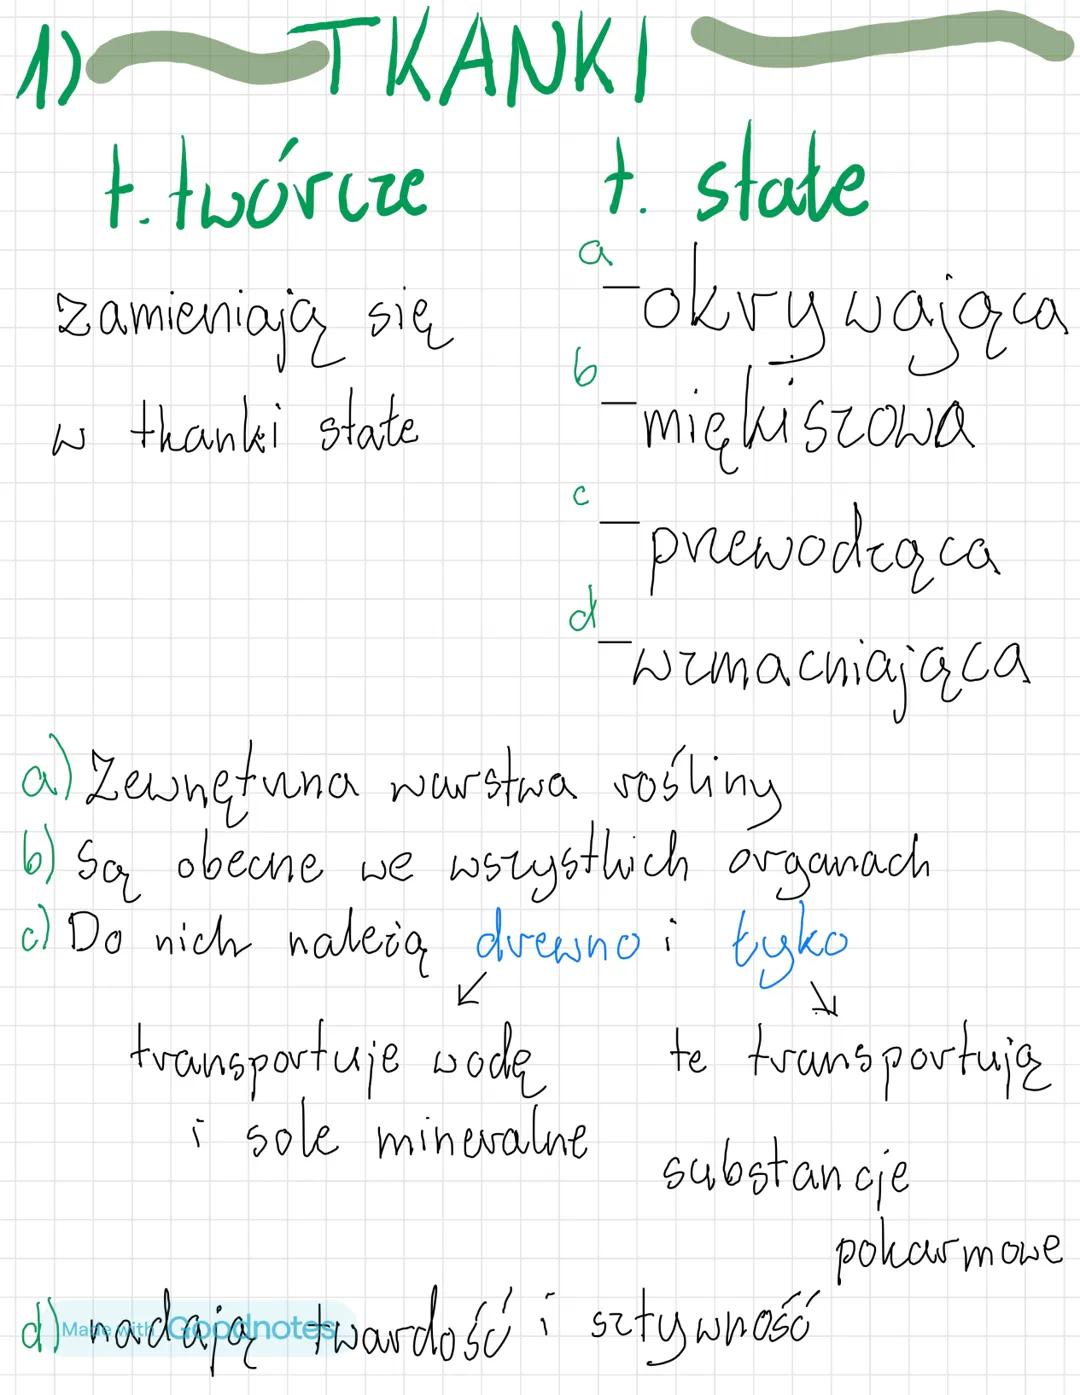 1) TKANKI
t. twórcze
t. stałe
zamieniają się
w tkanki stałe
a - okrywająca
b - miękiszowa
c - przewodząca
d - wzmacniająca
a) Zewnętrzna warstwa rośliny
b) Są obecne we wszystkich organach
c) Do nich należą drewno i łyko
transportuje wodę
i sole mineralne
te transportują
substancje
pokarmowe
d) nadają twardość i sztywność
Made with Goodnotes